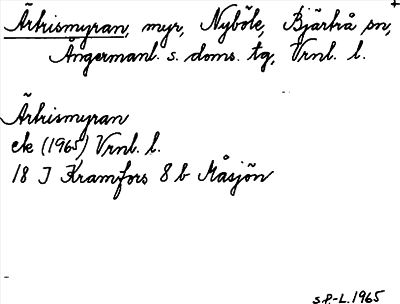 Ärtrismyran, myr, Nyböle, Bjärtrå sn,
Ångermanl. s. doms. tg, Vrnl. l.
Ärtrismyran
ek (1965) Vrnl. l.
18 J Kramfors 8 b Måsjön
S.P.-L. 1965